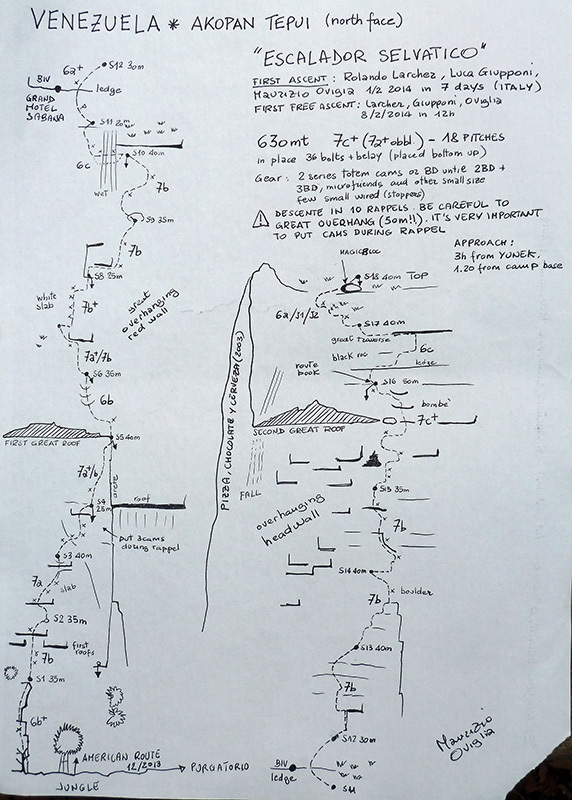 VENEZUELA * AKOPAN TEPUI (north face)
"ESCALADOR SELVATICO"
FIRST ASCENT: Rolando Larcher, Luca Giupponi,
Maurizio Oviglia 1/2 2014 in 7 days (ITALY)
FIRST FREE ASCENT: Larcher, Giupponi, Oviglia
8/2/2014 in 12h
630mt 7c+ (7a+obbl) - 18 PITCHES
in place 36 bolts + belay (placed bottom up)
Gear: 2 series totem cams or BD until 2BD +
3BD, microfriends and other small size
few small wired (stoppers)
! DESCENTE IN 10 RAPPELS. BE CAREFUL TO
GREAT OVERHANG (50m!!). IT'S VERY IMPORTANT
TO PUT CAMS DURING RAPPEL
APPROACH:
3h from YUNEK,
1.20 from camp base
S12 30m
6a+
BIV
ledge
GRAND
HOTEL
SABANA
S11
S10 40m
6c
WET
7b
S9 35m
7b
S8 25m
white
slab
7b+
great
overhanging
red wall
7a+/7b
S6 35m
6b
S5 40m
FIRST GREAT ROOF
7a+/b
S4
25m
roof
put 3 cams
during rappel
S3 40m
7a
slab
S2 35m
first
roofs
7b
S1 35m
6b+
AMERICAN ROUTE
12/2013
PURGATORIO
JUNGLE
MAGIC BLOC
S18 40m TOP
6a/S1/S2
S17 40m
great traverse
black roc
6c
ledge
route
book
S16 50m
bombè
7c+
SECOND GREAT ROOF
PIZZA, CHOCOLATE Y CERVEZA (2003)
FALL
S15 35m
overhanging
headwall
7b
S14 40m
boulder
7b
S13 40m
7b
S12 30m
BIV
ledge
S11
Maurizio
Oviglia